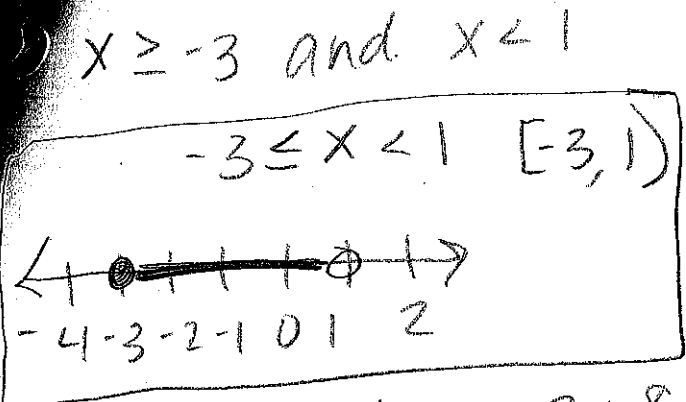 x ≥ -3 and x < 1
-3 ≤ x < 1 [-3, 1)
-4 -3 -2 -1 0 1 2